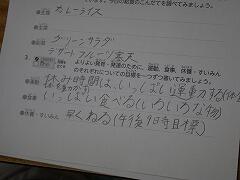 今日の給食のこんだてを調べてみましょう。
カレーライス
グリーンサラダ
デザート フルーツ寒天
3. よりよい発育・発達のために、運動、食事、休養・すいみん
のそれぞれについての目標を一つずつ書いてみましょう。
●運動 休み時間は、いっぱい運動する
●食事 いっぱい食べる(いろいろな物)
●休養・すいみん 早くねる(午後9時目標)